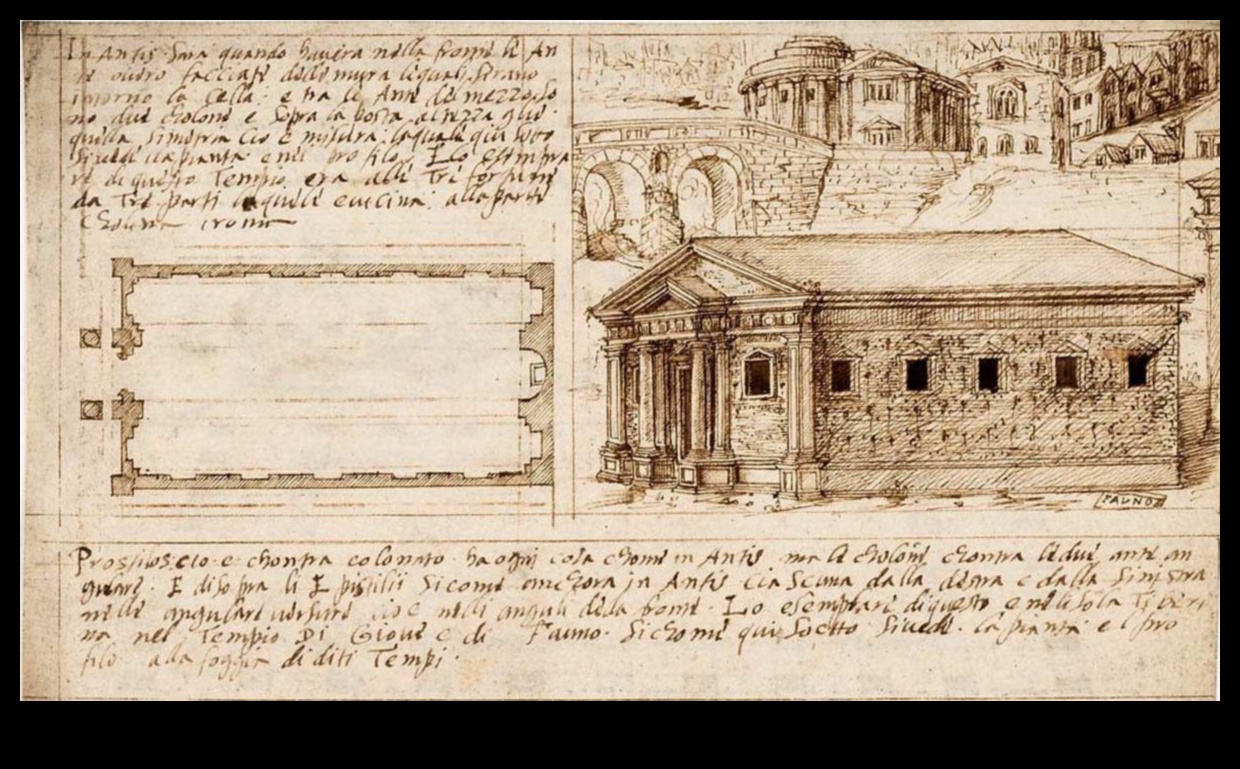 In Antis sara quando havera nella fronte le An
te overo facciate delle mura lequali serano
intorno la Cella: e tra le Ante del mezzo so
no due cholone e sopra la posta altezza
quella simetria cio e misura laquale qui sotto
si vede la pianta e nel profilo. E lo esempra
re di questo Tempio era alle Tre fortune
da Tre parti e vicina alla porta
Prostilos, cio e chontra colonato ha ogni cosa chome in Antis ma le cholone chontra le due ante an
gulare. E di sopra li Epistilii Sicome anchora in Antis Ciascuna dalla destra e dalla Sinistra
nelle angulare versure cio e nelli anguli dela fronte. Lo esemprare di questo e nelisola Tiberi
na nel Tempio Di Giove e di Fauno. Sichome qui Soctto Sivede la pianta e l pro
filo alla foggia di diti Tempi.
FAUNO